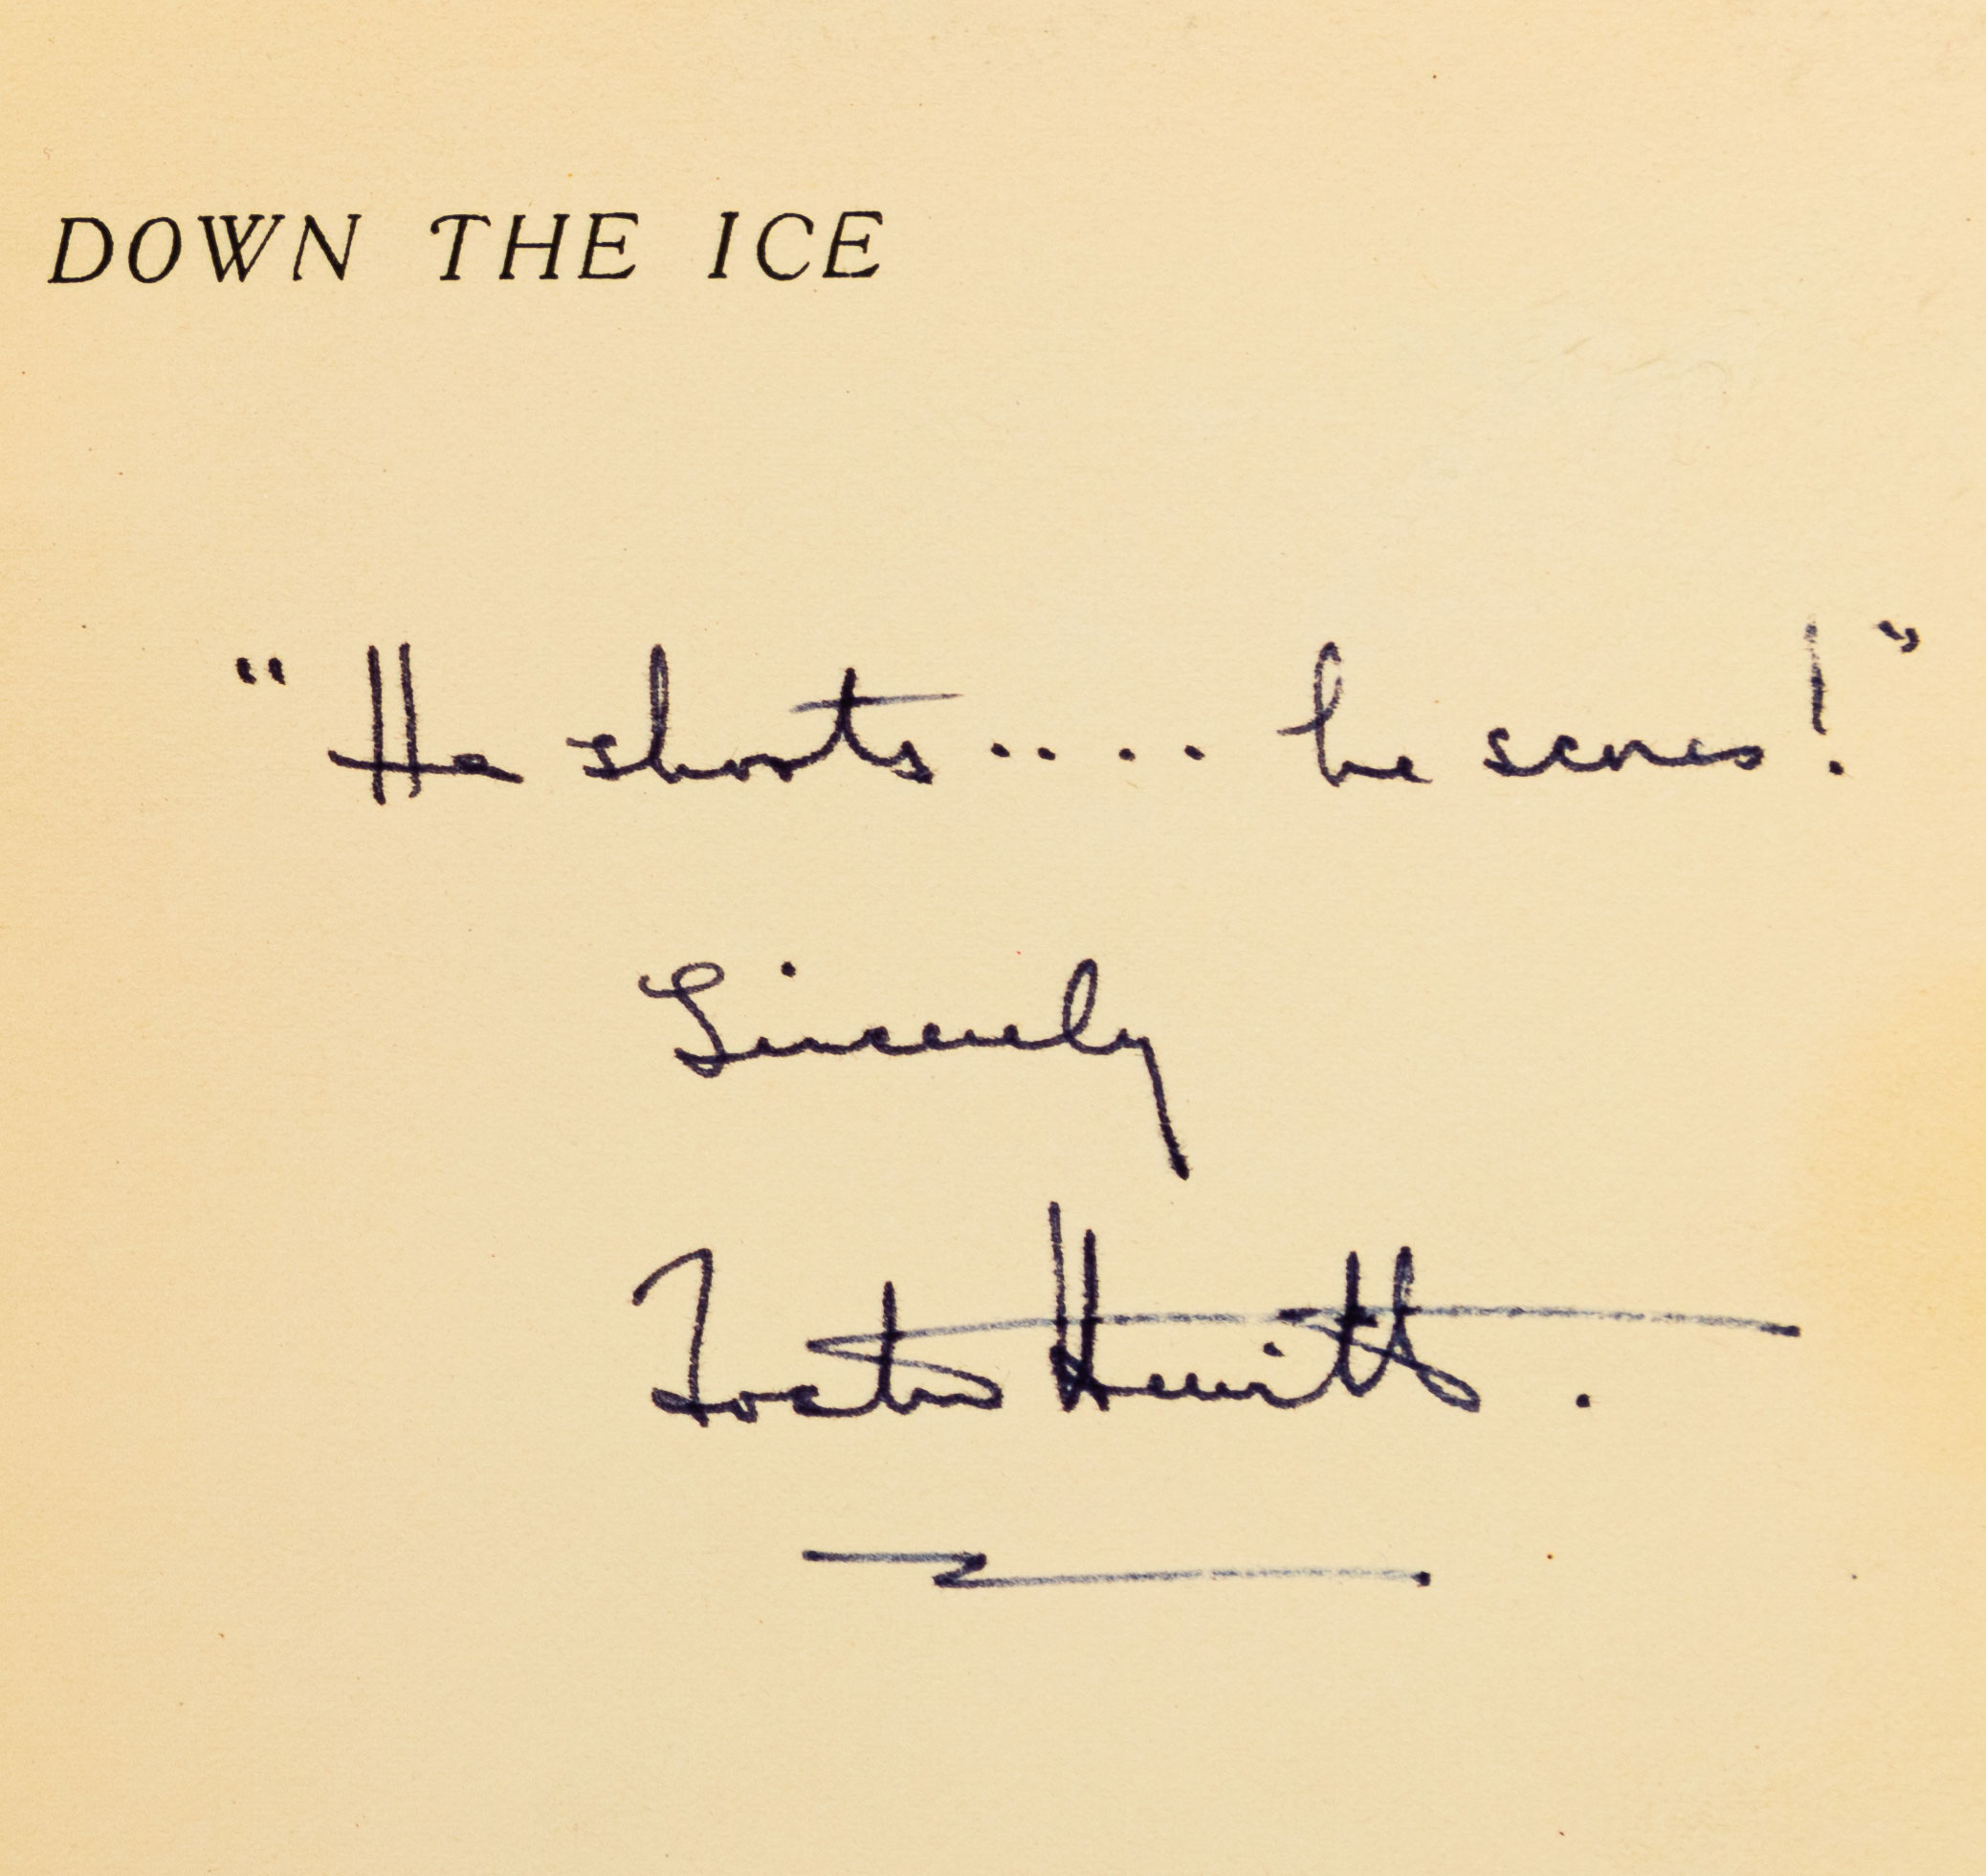 DOWN THE ICE
"He shoots.... he scores!"
Sincerely
Foster Hewitt.